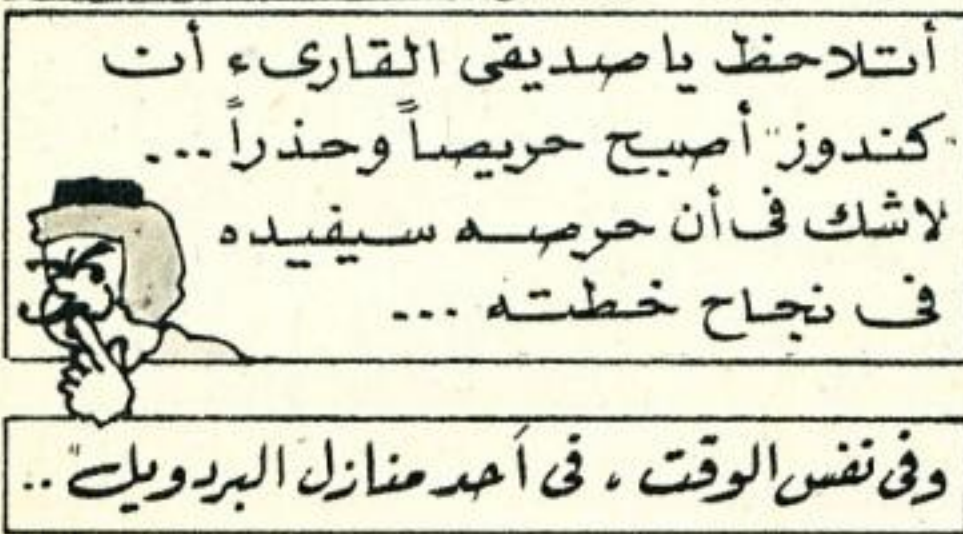 أتلاحظ ياصديقى القارىء أن
"كندوز" أصبح حريصاً وحذراً ...
لاشك فى أن حرصه سيفيده
فى نجاح خطته ...
وفى نفس الوقت ، فى أحد منازل البردويل" ..